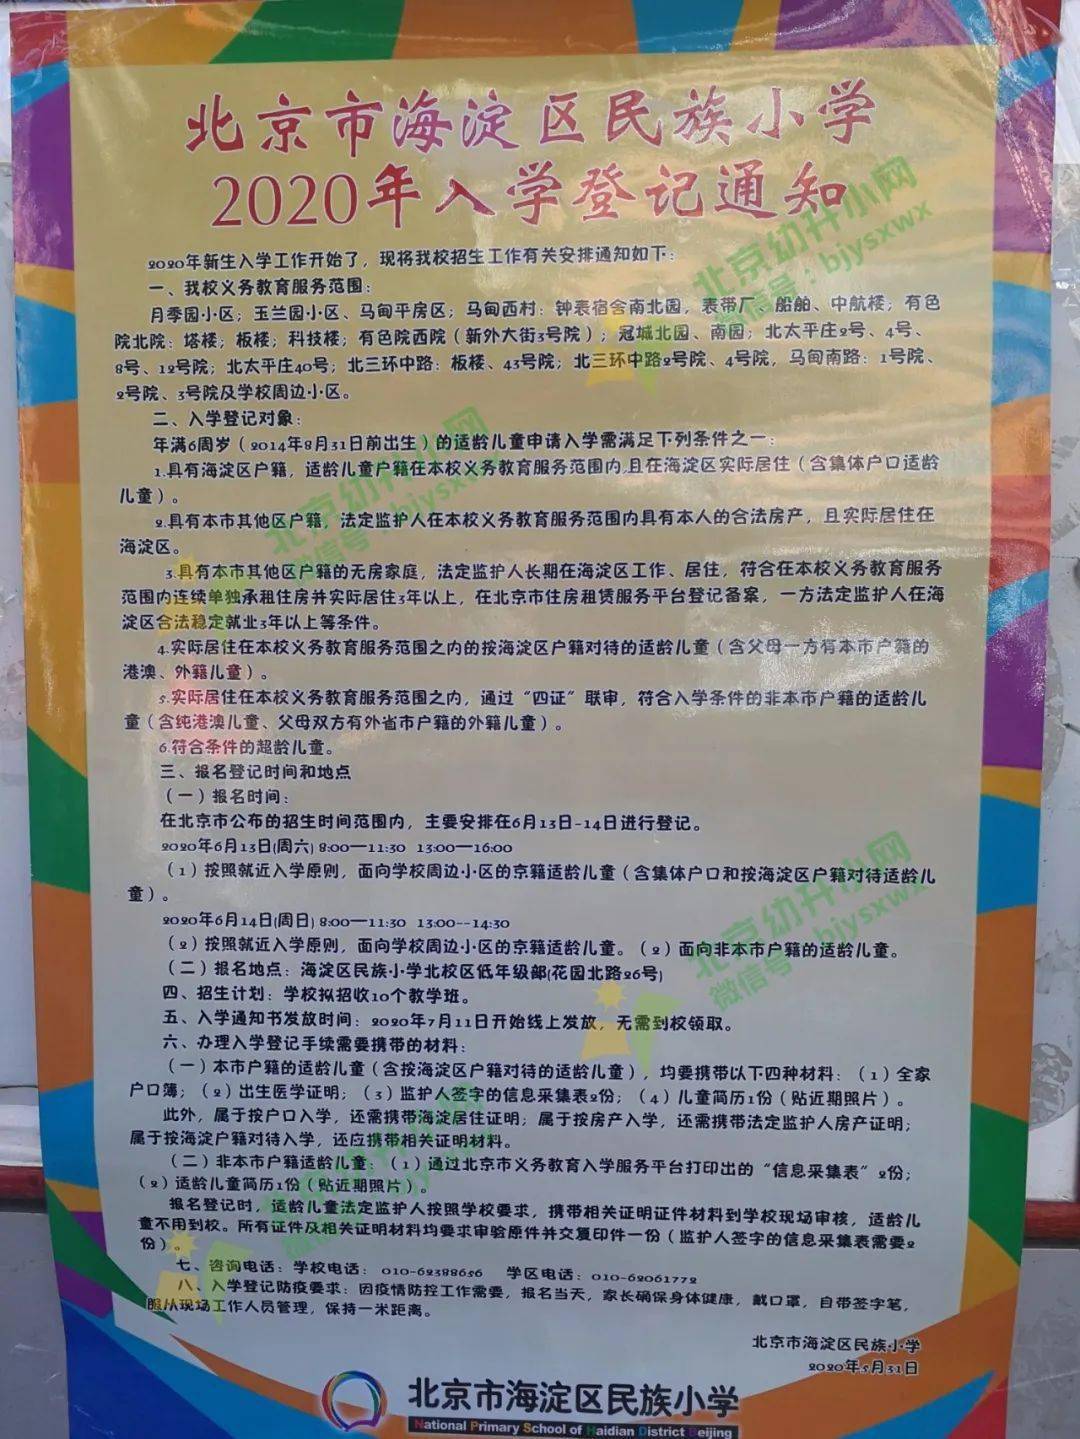 北京市海淀区民族小学
2020年入学登记通知
2020年新生入学工作开始了，现将我校招生工作有关安排通知如下：
一、我校义务教育服务范围：
月季园小区；玉兰园小区、马甸平房区；马甸西村：钟表宿舍南北园，表带厂、船舶、中航楼；有色
院北院：塔楼；板楼；科技楼；有色院西院（新外大街3号院）；冠城北园、南园；北太平庄2号、4号、
8号、12号院；北太平庄40号；北三环中路：板楼、43号院；北三环中路2号院、4号院，马甸南路：1号院、
2号院、3号院及学校周边小区。
二、入学登记对象：
年满6周岁（2014年8月31日前出生）的适龄儿童申请入学需满足下列条件之一：
1.具有海淀区户籍，适龄儿童户籍在本校义务教育服务范围内,且在海淀区实际居住（含集体户口适龄
儿童）。
2.具有本市其他区户籍，法定监护人在本校义务教育服务范围内具有本人的合法房产，且实际居住在
海淀区。
3.具有本市其他区户籍的无房家庭，法定监护人长期在海淀区工作、居住，符合在本校义务教育服务
范围内连续单独承租住房并实际居住3年以上，在北京市住房租赁服务平台登记备案，一方法定监护人在海
淀区合法稳定就业3年以上等条件。
4.实际居住在本校义务教育服务范围之内的按海淀区户籍对待的适龄儿童（含父母一方有本市户籍的
港澳、外籍儿童）。
5.实际居住在本校义务教育服务范围之内，通过“四证”联审，符合入学条件的非本市户籍的适龄儿
童（含纯港澳儿童、父母双方有外省市户籍的外籍儿童）。
6.符合条件的超龄儿童。
三、报名登记时间和地点
（一）报名时间：
在北京市公布的招生时间范围内，主要安排在6月13日-14日进行登记。
2020年6月13日(周六) 8:00—11:30 13:00—16:00
（1）按照就近入学原则，面向学校周边小区的京籍适龄儿童（含集体户口和按海淀区户籍对待适龄儿
童）。
2020年6月14日(周日) 8:00—11:30 13:00--14:30
（2）按照就近入学原则，面向学校周边小区的京籍适龄儿童。（2）面向非本市户籍的适龄儿童。
（二）报名地点：海淀区民族小学北校区低年级部(花园北路26号)
四、招生计划：学校拟招收10个教学班。
五、入学通知书发放时间：2020年7月11日开始线上发放，无需到校领取。
六、办理入学登记手续需要携带的材料：
（一）本市户籍的适龄儿童（含按海淀区户籍对待的适龄儿童），均要携带以下四种材料：（1）全家
户口簿；（2）出生医学证明；（3）监护人签字的信息采集表2份；（4）儿童简历1份（贴近期照片）。
此外，属于按户口入学，还需携带海淀居住证明；属于按房产入学，还需携带法定监护人房产证明；
属于按海淀户籍对待入学，还应携带相关证明材料。
（二）非本市户籍适龄儿童：（1）通过北京市义务教育入学服务平台打印出的“信息采集表”2份；
（2）适龄儿童简历1份（贴近期照片）。
报名登记时，适龄儿童法定监护人按照学校要求，携带相关证明证件材料到学校现场审核，适龄儿
童不用到校。所有证件及相关证明材料均要求审验原件并交复印件一份（监护人签字的信息采集表需要2
份）。
七、咨询电话：学校电话：010-62388656 学区电话：010-62061772
八、入学登记防疫要求：因疫情防控工作需要，报名当天，家长确保身体健康，戴口罩，自带签字笔，
服从现场工作人员管理，保持一米距离。
北京市海淀区民族小学
2020年5月31日
北京市海淀区民族小学
National Primary School of Haidian District Beijing
北京幼升小网
微信号：bjysxwx
北京幼升小网
微信号：bjysxwx
北京幼升小网
微信号：bjysxwx